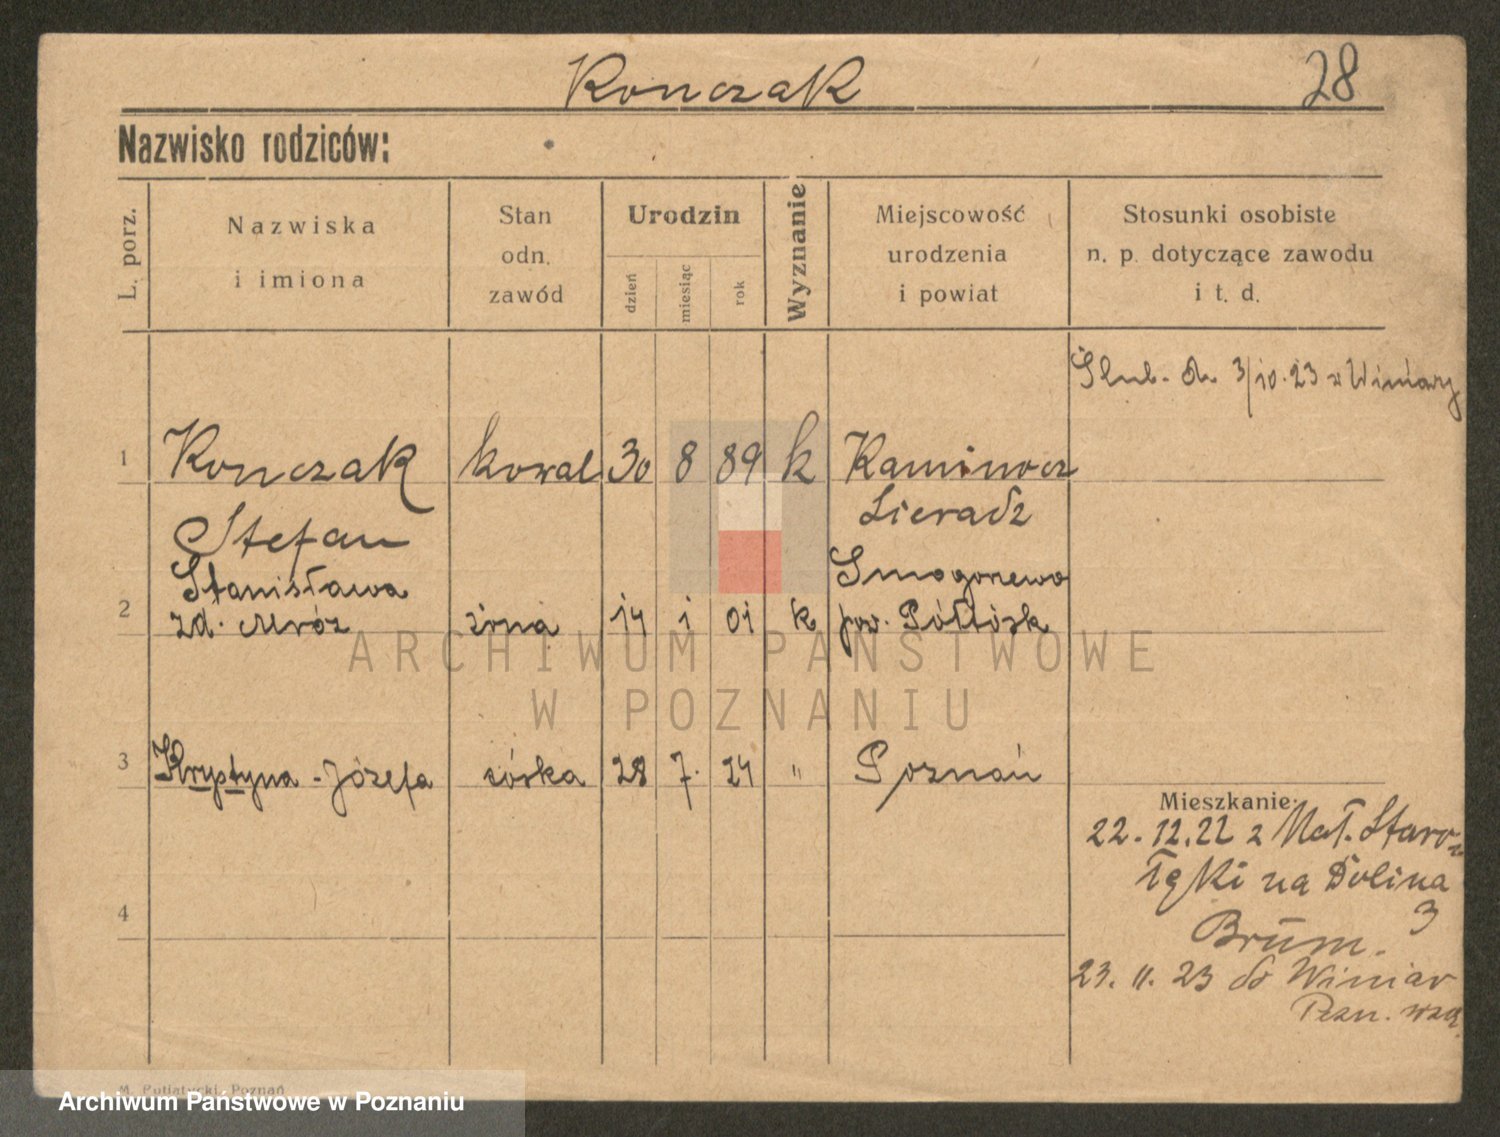 Konczak
28
Nazwisko rodziców:
L. porz.
Nazwiska
i imiona
Stan
odn.
zawód
Urodzin
dzień
miesiąc
rok
Wyznanie
Miejscowość
urodzenia
i powiat
Stosunki osobiste
n. p. dotyczące zawodu
i t. d.
Ślub. dn. 3/10.23 w Winiary
1 Konczak kowal 30 8 89 k
Sieradz
Stefan
Stanisława Smogorzewo
2 zd. Mróz żona 14 1 01 k pow.
ARCHIWUM PAŃSTWOWE
W POZNANIU
3 Krystyna - Józefa córka 28 7. 24 " Poznań
Mieszkanie:
22.12.22 z Staro-
łęki na Dolina
3
4
Brum.
23. 11. 23 do Winiar
M. Putiatycki, Poznań
Archiwum Państwowe w Poznaniu